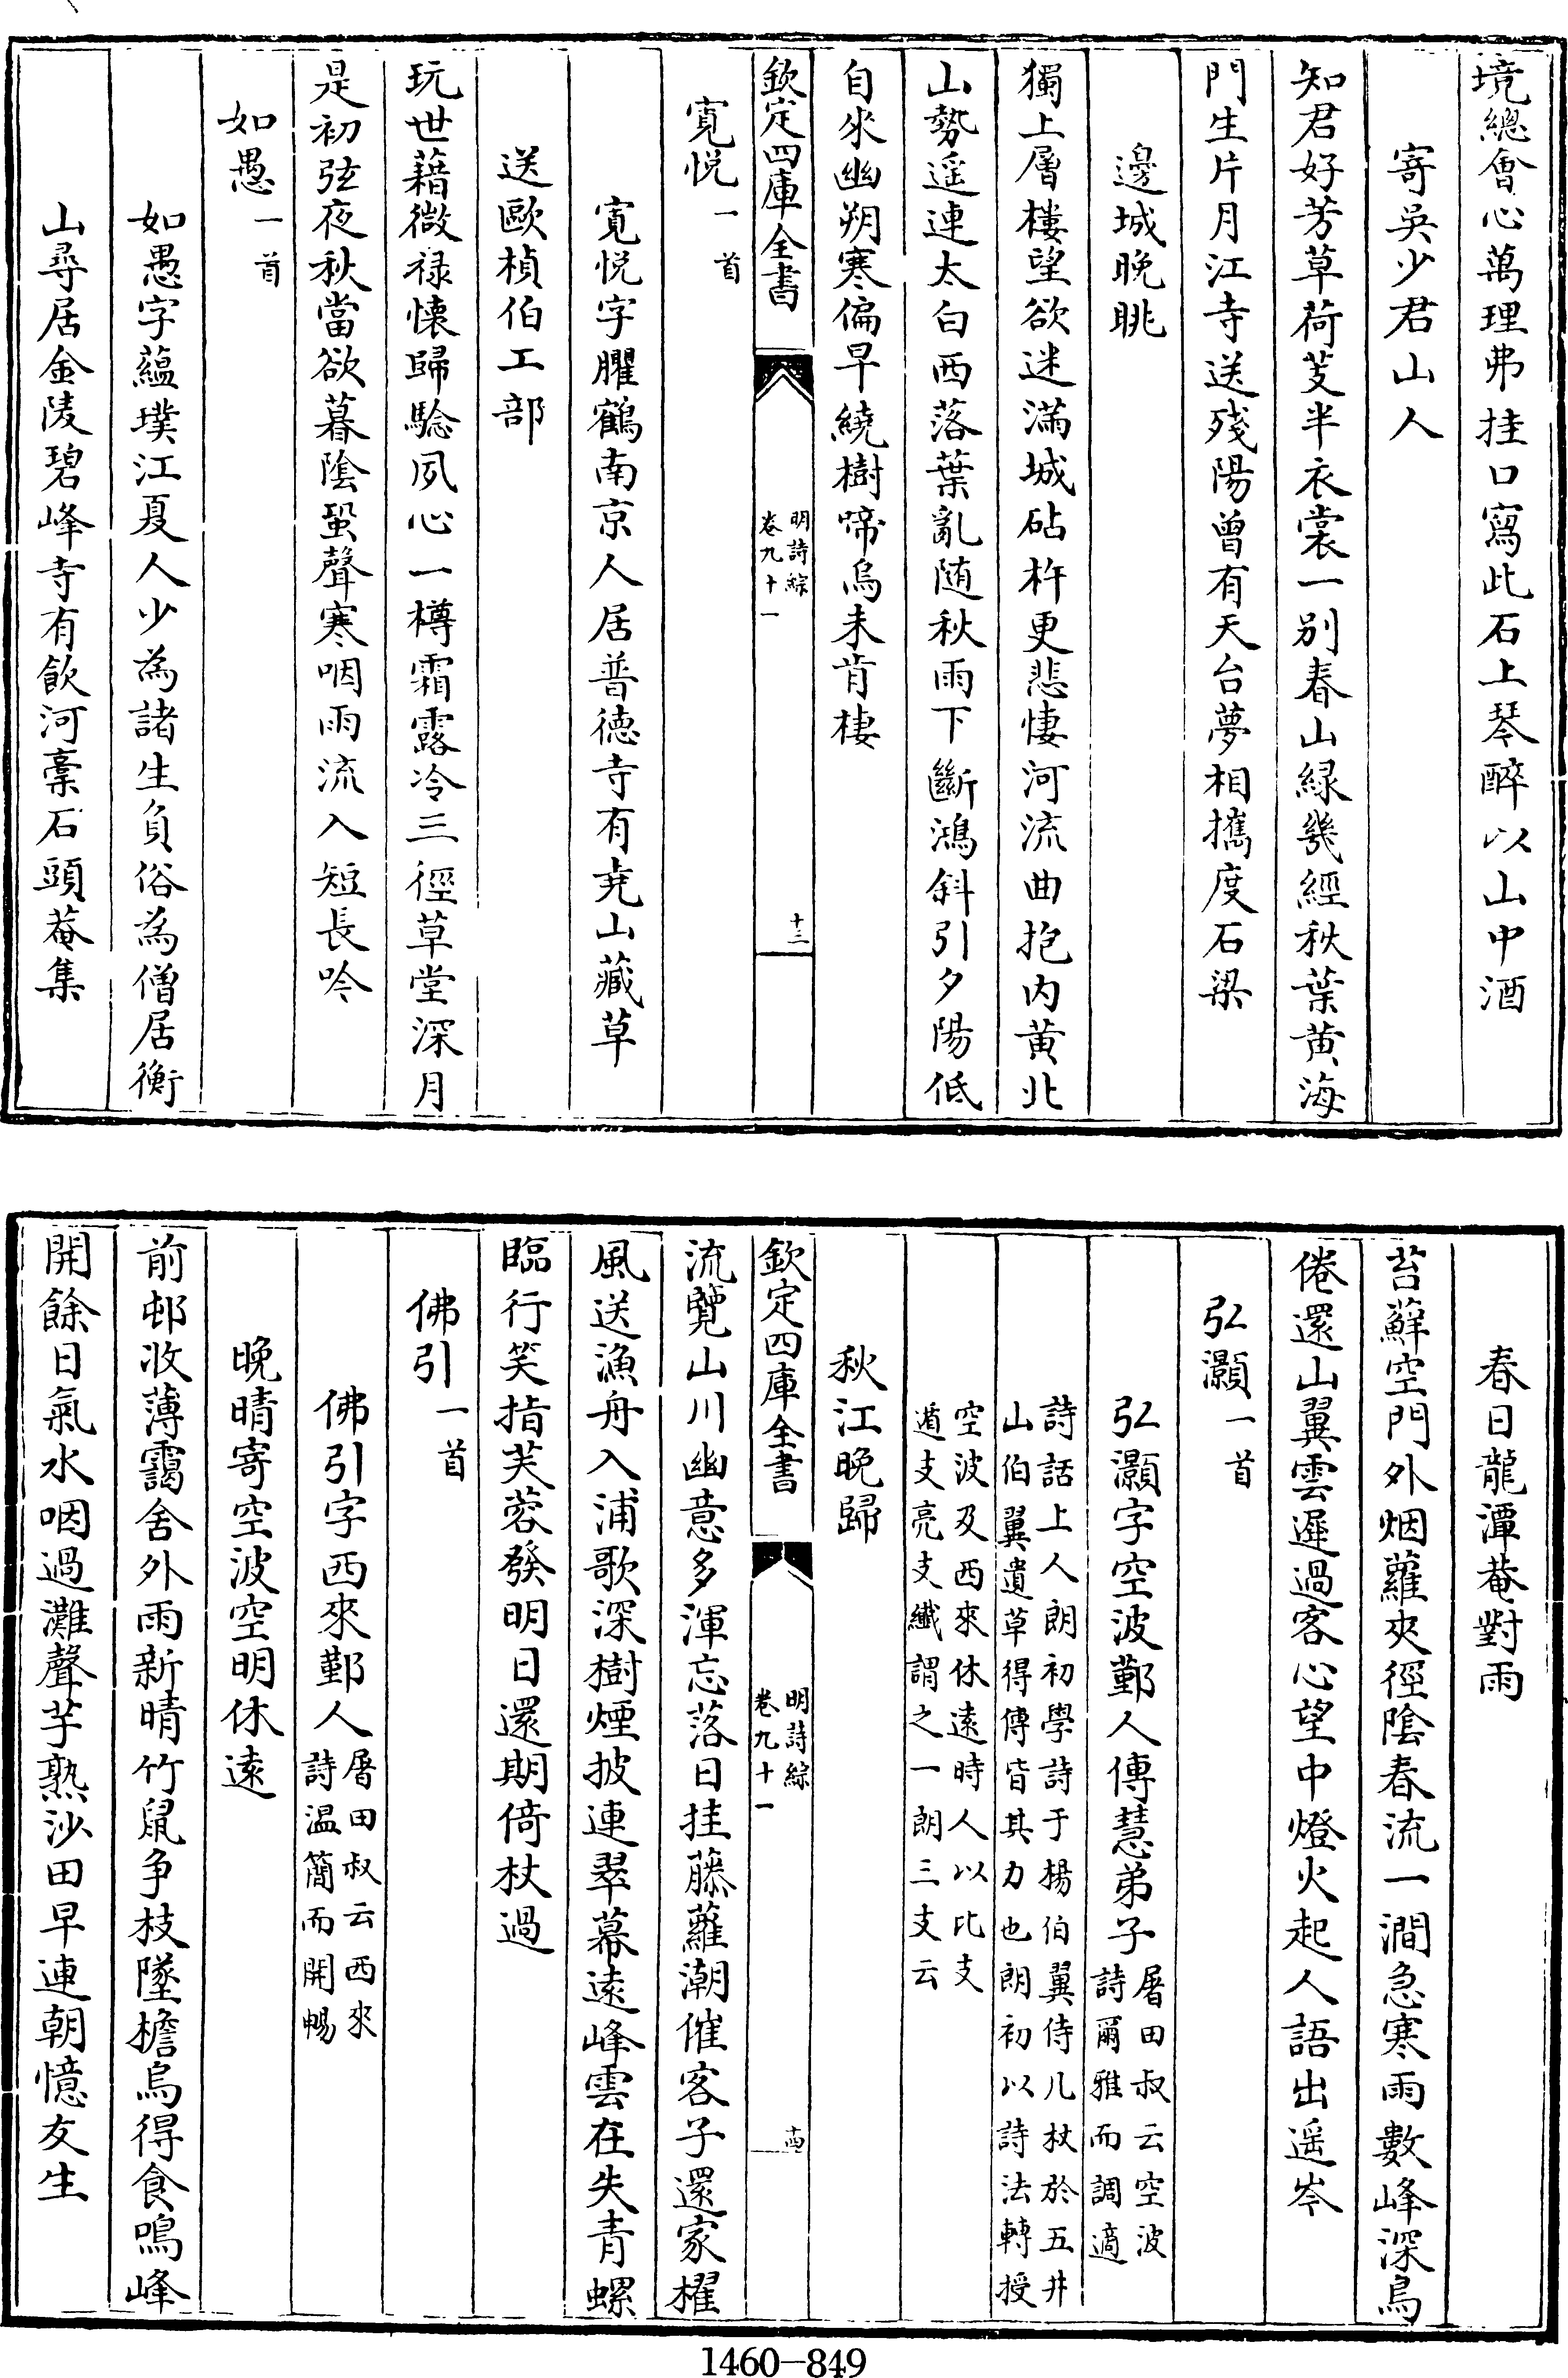 境總會心萬理弗挂口寫此石上琴醉以山中酒
寄吳少君山人
知君好芳草荷芰半衣裳一別春山緑幾經秋葉黄海
門生片月江寺送殘陽曽有天台夢相攜度石梁
邊城晩眺
獨上層樓望欲迷滿城砧杵更悲悽河流曲抱内黄北
山勢遥連太白西落葉亂随秋雨下斷鴻斜引夕陽低
自來幽朔寒偏早繞樹啼烏未肯棲
欽定四庫全書
明詩綜
卷九十一
十三
寛悦一首
寛悦字臞鶴南京人居普徳寺有堯山藏草
送歐楨伯工部
玩世藉微禄懐歸騐夙心一樽霜露冷三徑草堂深月
是初弦夜秋當欲暮隂蛩聲寒咽雨流入短長吟
如愚一首
如愚字藴璞江夏人少為諸生負俗為僧居衡
山尋居金陵碧峰寺有飲河藁石頭菴集
春日龍潭菴對雨
苔蘚空門外烟蘿夾徑隂春流一澗急寒雨數峰深鳥
倦還山翼雲遲過客心望中燈火起人語出遥岑
弘灝一首
弘灝字空波鄞人傳慧弟子屠田叔云空波
詩爾雅而調適
詩話上人朗初學詩于楊伯翼侍几杖於五井
山伯翼遺草得傳皆其力也朗初以詩法轉授
空波及西來休逺時人以比支
遁支亮支纎謂之一朗三支云
秋江晩歸
欽定四庫全書
明詩綜
卷九十一
十四
流覽山川幽意多渾忘落日挂藤蘿潮催客子還家櫂
風送漁舟入浦歌深樹煙披連翠幕逺峰雲在失青螺
臨行笑指芙蓉發明日還期倚杖過
佛引一首
佛引字西來鄞人屠田叔云西來
詩温簡而開暢
晩晴寄空波空明休逺
前邨收薄靄舍外雨新晴竹鼠争枝墜檐烏得食鳴峰
開餘日氣水咽過灘聲芋熟沙田早連朝憶友生
1460-849